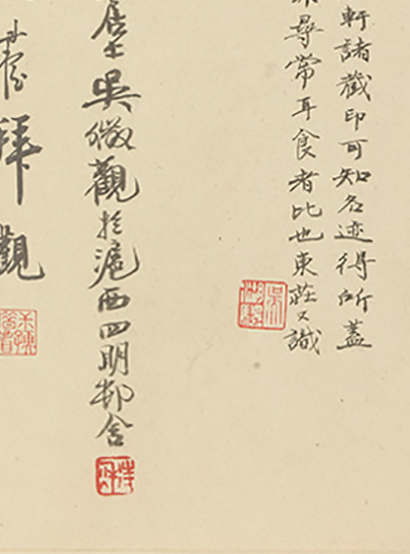 軒諸籤印可知名迹得所蓋
尋常耳食者比也東莊又識
居士吳徵觀於滬西四明邨舍
拜觀